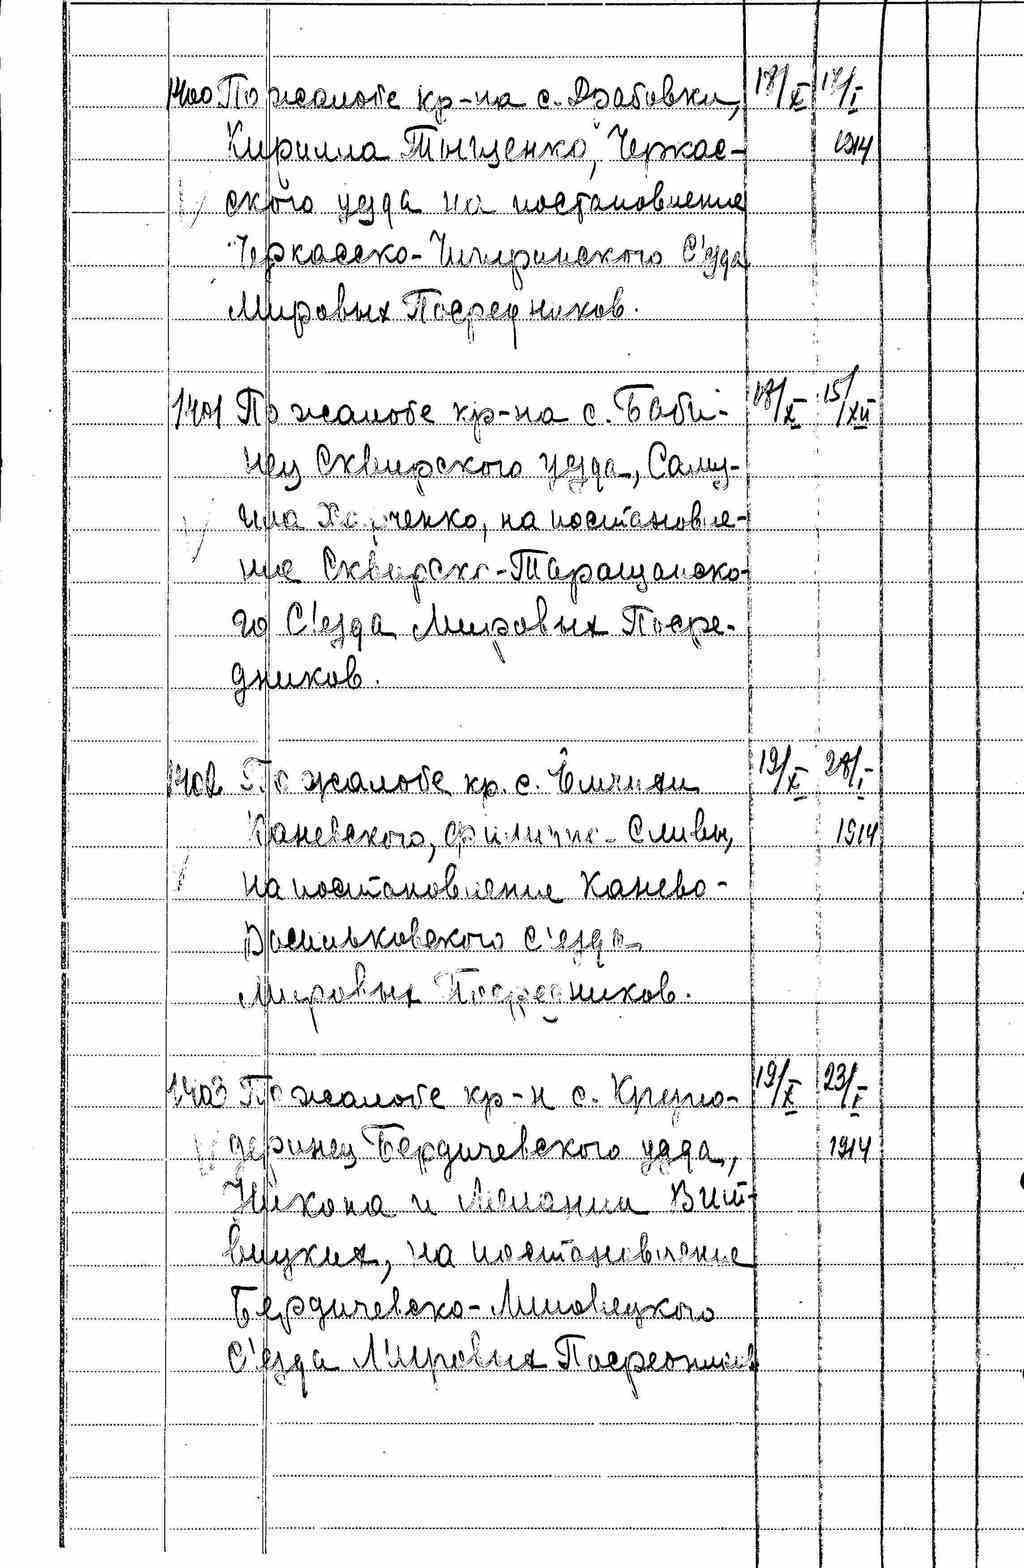 1400 По жалобе кр-на с. Драбовки, 18/X 17/I
Кирилла Тыщенко, Черкас- 1914
ского уезда на постановление
Черкасско-Чигиринского С'езда
Мировых Посредников.
1401 По жалобе кр-на с. Баби- 18/X 15/XII
нец Сквирского уезда, Саму-
ила Харченко, на постановле-
ние Сквирско-Таращанско-
го С'езда Мировых Посре-
дников.
1402 По жалобе кр. с. 19/X 28/I
Каневского, Филиппа Сливы, 1914
на постановление Канево-
Васильковского с'езда
Мировых Посредников.
1403 По жалобе кр-н с. 19/X 23/I
Бердичевского уезда, 1914
Никона и Мелании Вит-
вицких, на постановление
Бердичевско-Липовецкого
С'езда Мировых Посредников